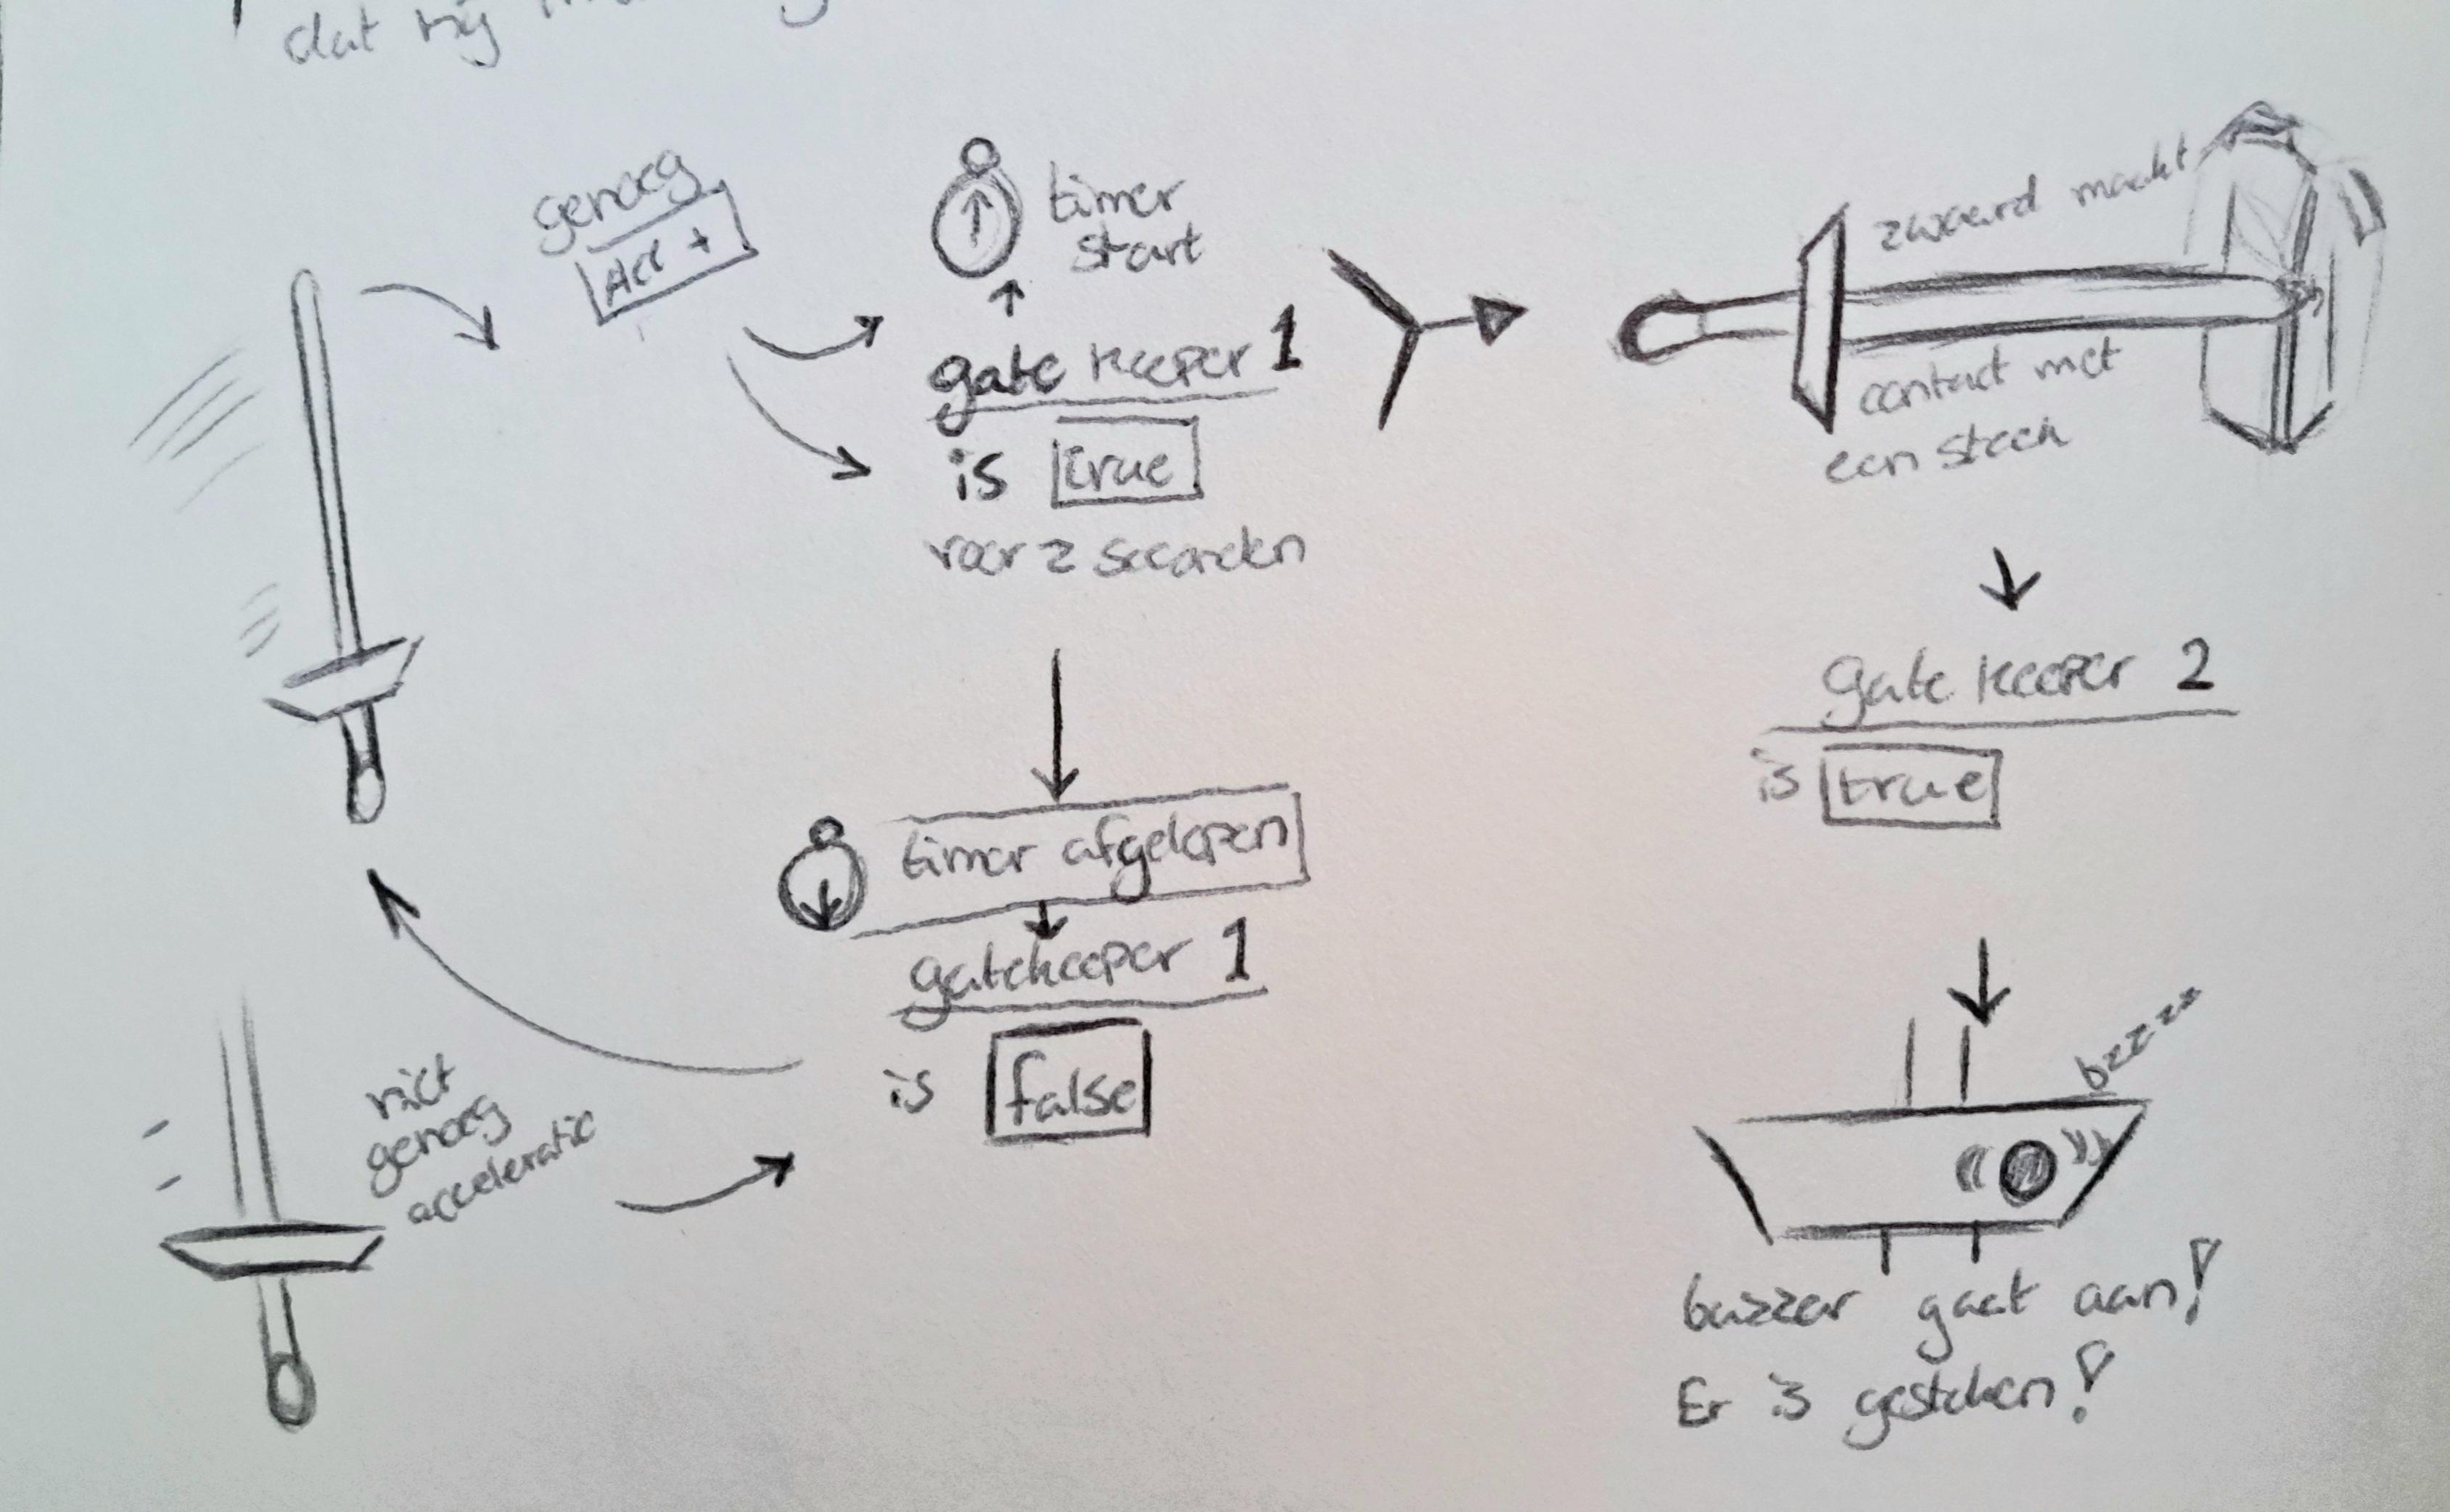 dat hij
genoeg
Acc +
timer
start
gate keeper 1
is true
voor 2 seconden
timer afgelopen
gatekeeper 1
is false
niet
genoeg
acceleratie
zwaard maakt
contact met
een steek
gate keeper 2
is true
bzzzz
buzzer gaat aan!
Er is gestoken!